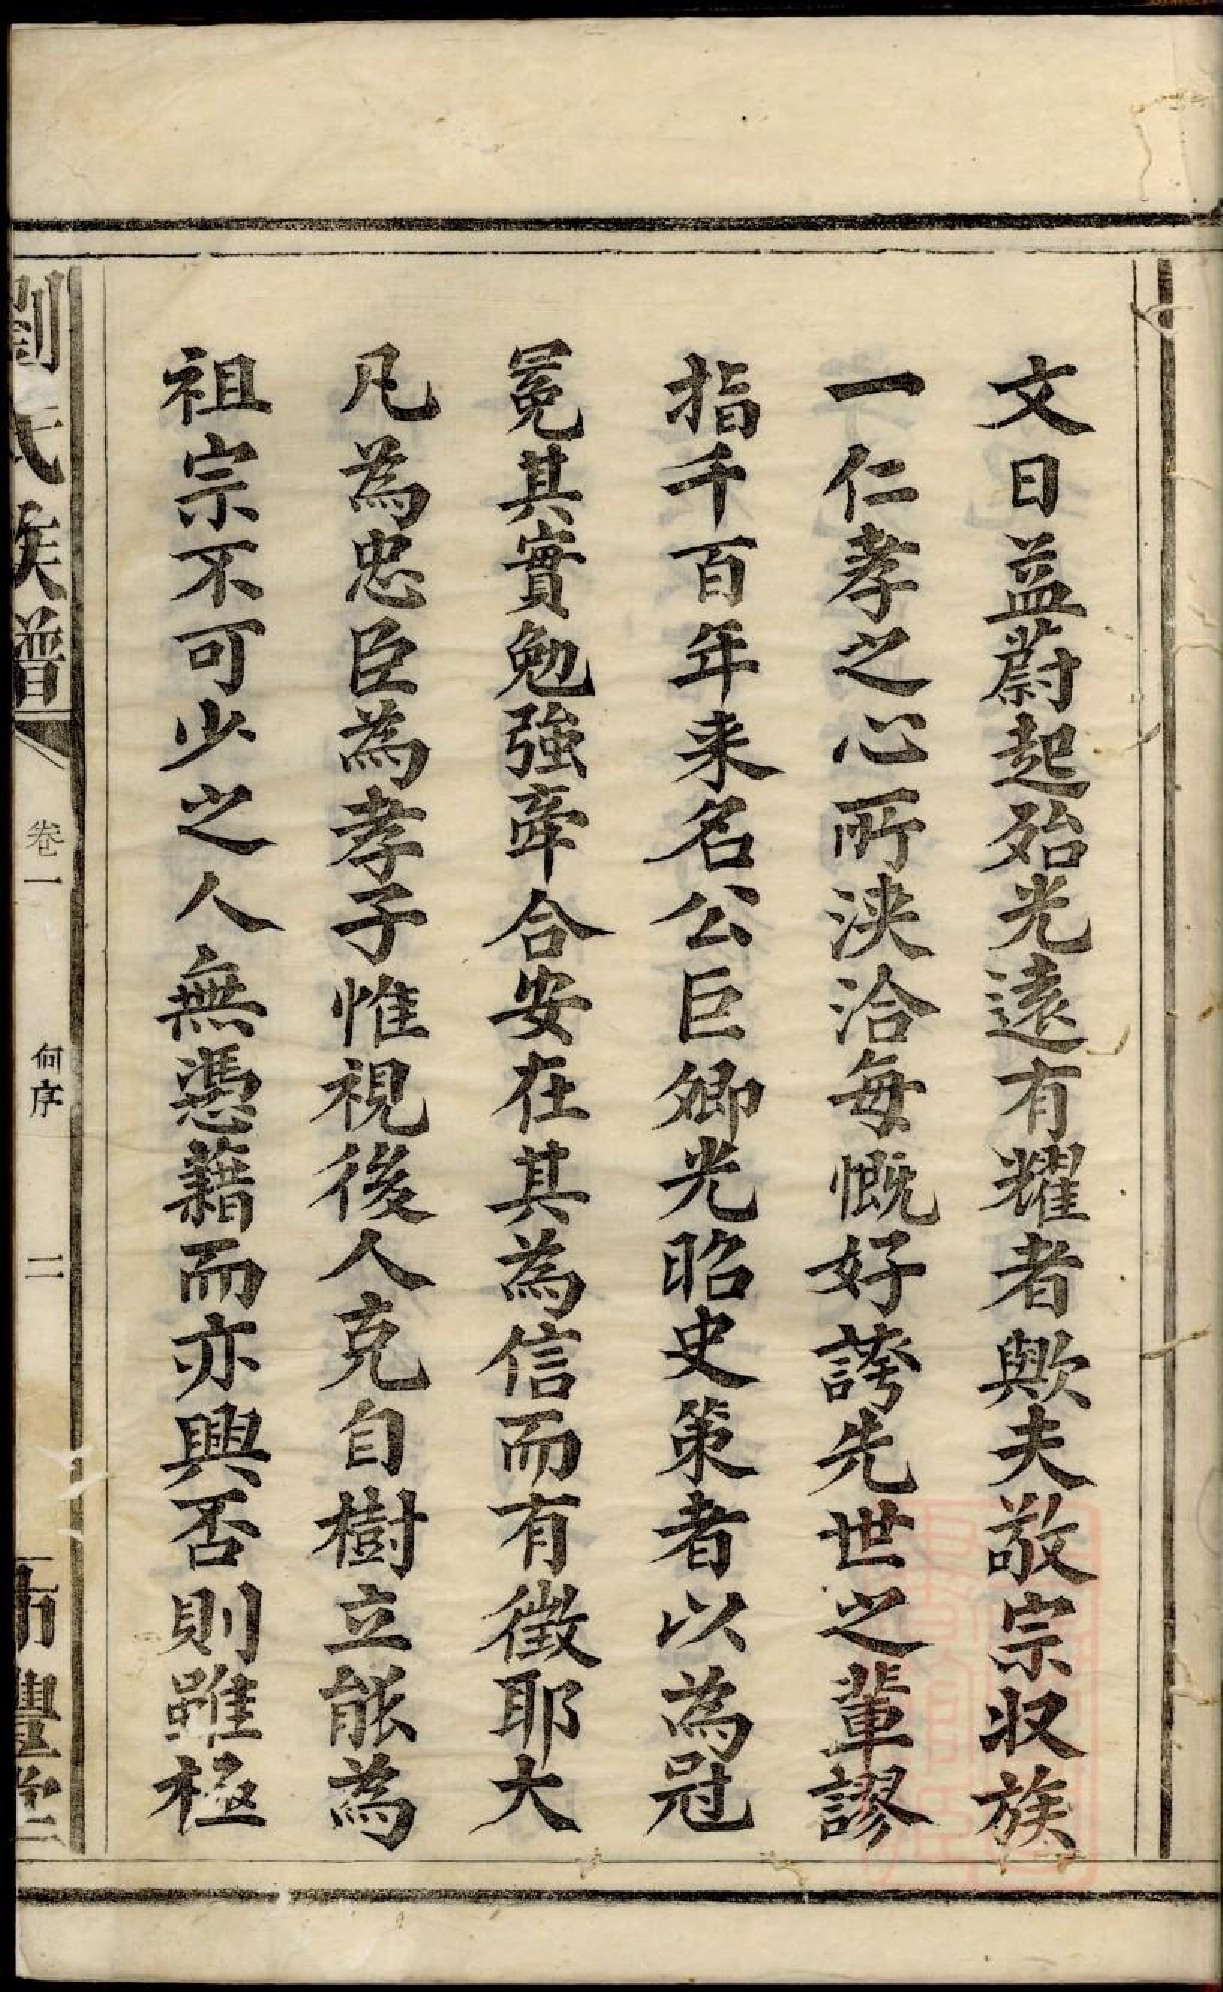 文日益蔚起殆光遠有耀者歟夫敬宗收族
一仁孝之心所浹洽每慨好誇先世之輩謬
指千百年来名公巨卿光昭史策者以為冠
冕其實勉強牽合安在其為信而有徵耶大
凡為忠臣為孝子惟視後人克自樹立能為
祖宗不可少之人無憑藉而亦興否則雖極
劉氏族譜
卷一
何序
二
豐堂